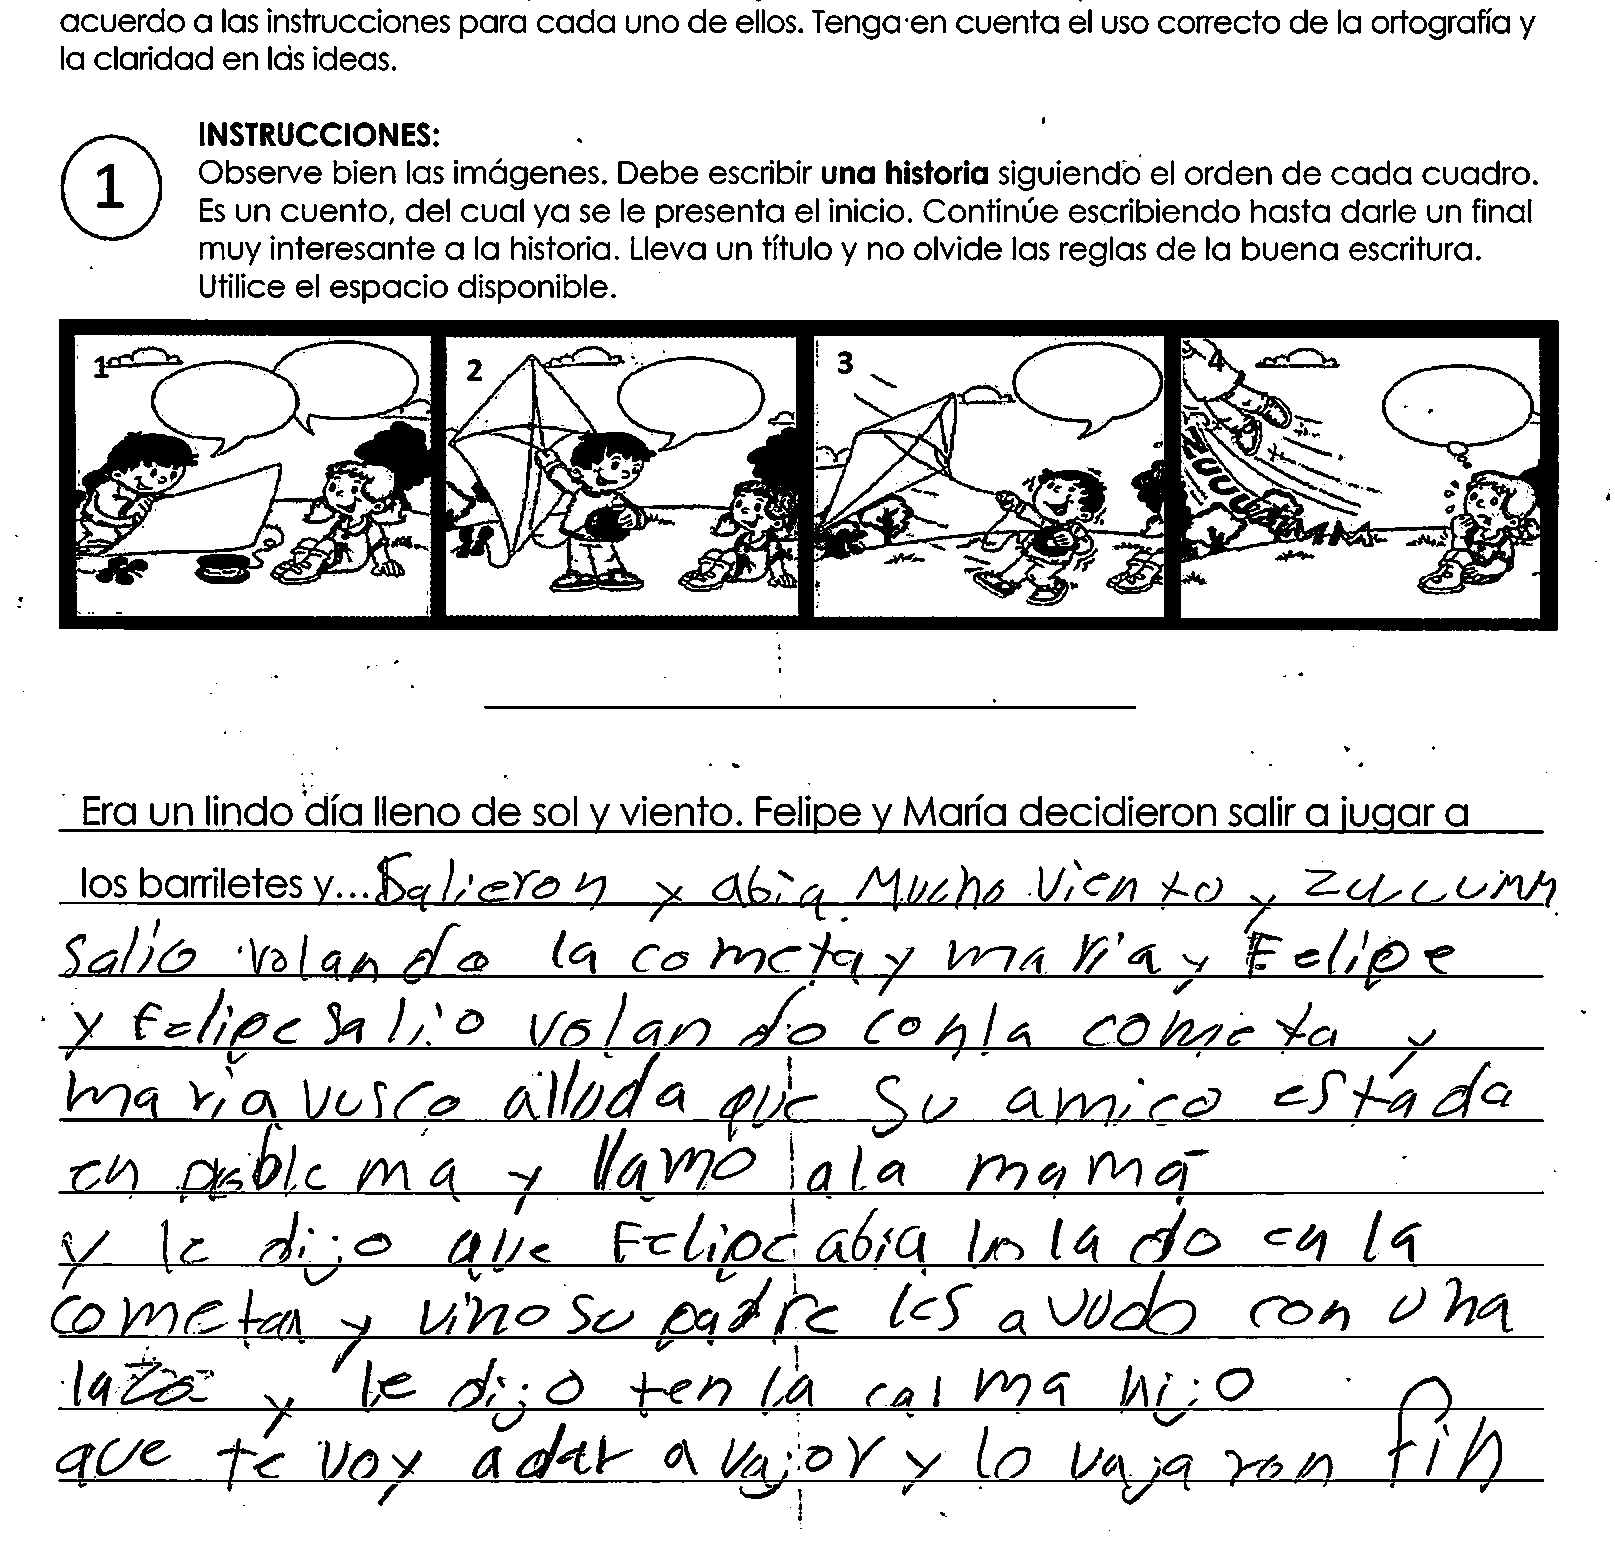 acuerdo a las instrucciones para cada uno de ellos. Tenga en cuenta el uso correcto de la ortografía y
la claridad en las ideas.
1
INSTRUCCIONES:
Observe bien las imágenes. Debe escribir una historia siguiendo el orden de cada cuadro.
Es un cuento, del cual ya se le presenta el inicio. Continúe escribiendo hasta darle un final
muy interesante a la historia. Lleva un título y no olvide las reglas de la buena escritura.
Utilice el espacio disponible.
1 2 3 4
Era un lindo día lleno de sol y viento. Felipe y María decidieron salir a jugar a
los barriletes y... Salieron y abia Mucho viento y
salio volando la cometa y maria y Felipe
y Felipe salio volando con la cometa y
maria vusco alluda que su amico estada
en problema y llamo a la mama
y le dijo que Felipe abia en la cn la
cometan y vino su padre les con una
y le dijo ten la calma hijo
que te voy a a vajor y lo vajaron fin